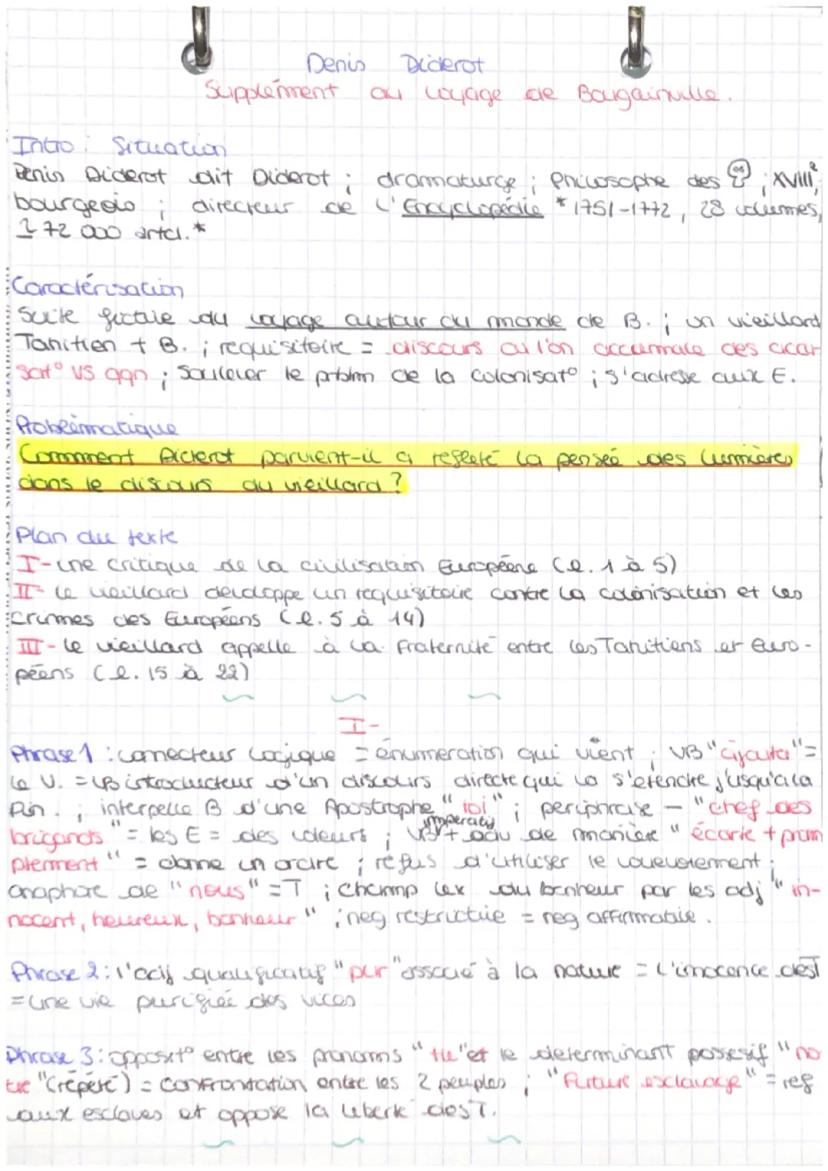 Denis Diderot
Supplément au voyage de Bougainville.
Intro : Situation
Denis Diderot dit Diderot ; dramaturge ; philosophe des ; XVIIIe,
bourgeois ; directeur de l'Encyclopédie * 1751-1772, 28 volumes,
72 000 articl.*
Caractérisation
Suite fictive du voyage autour du monde de B. ; un vieillard
Tahitien + B. ; requisitoire = discours où l'on accumule des accu
sat° VS qqn ; soulever le problm de la colonisat° ; s'adresse aux E.
Problématique
Comment Diderot parvient-il à refleté la pensée des lumières
dans le discours du vieillard ?
Plan du texte
I- une critique de la civilisation Européene (l. 1 à 5)
II- le vieillard developpe un requisitoire contre la colonisation et les
crimes des Européens (l. 5 à 14)
III- le vieillard appelle à la fraternité entre les Tahitiens et Euro-
péens (l. 15 à 22)
I-
Phrase 1 : connecteur logique = énumeration qui vient ; VB "ajouta" =
le V. = VB introducteur d'un discours directe qui va s'étendre jusqu'à la
fin. ; interpelle B d'une Apostrophe "toi" ; periphrase - "chef des
brigands" = les E = des voleurs ; VB impératif + adv de manière "écarte + prom
ptement" = donne un ordre ; refus d'utiliser le vouvoiement ;
anaphore de "nous" = T ; champ lex du bonheur par les adj "in-
nocent, heureux, bonheur" ; neg restrictive = neg affirmative.
Phrase 2 : l'adj qualificatif "pur" associé à la nature = l'inocence des T
= une vie purifiée des vices
Phrase 3 : opposit° entre les pronoms "tu" et le determinant possesif "no
tre" (répété) = confrontation entre les 2 peuples ; "futur esclavage" = ref
aux esclaves et oppose la liberté des T.